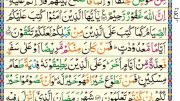 إِنَّ اللَّهَ غَفُورٌ رَّحِيمٌ يَا أَيُّهَا الَّذِينَ آمَنُوا كُتِبَ عَلَيْكُمُ
الصِّيَامُ كَمَا كُتِبَ عَلَى الَّذِينَ مِن قَبْلِكُمْ لَعَلَّكُمْ تَتَّقُونَ
أَيَّامًا مَّعْدُودَاتٍ فَمَن كَانَ مِنكُم مَّرِيضًا أَوْ عَلَىٰ سَفَرٍ
فَعِدَّةٌ مِّنْ أَيَّامٍ أُخَرَ وَعَلَى الَّذِينَ يُطِيقُونَهُ فِدْيَةٌ طَعَامُ
مِسْكِينٍ فَمَن تَطَوَّعَ خَيْرًا فَهُوَ خَيْرٌ لَّهُ وَأَن تَصُومُوا